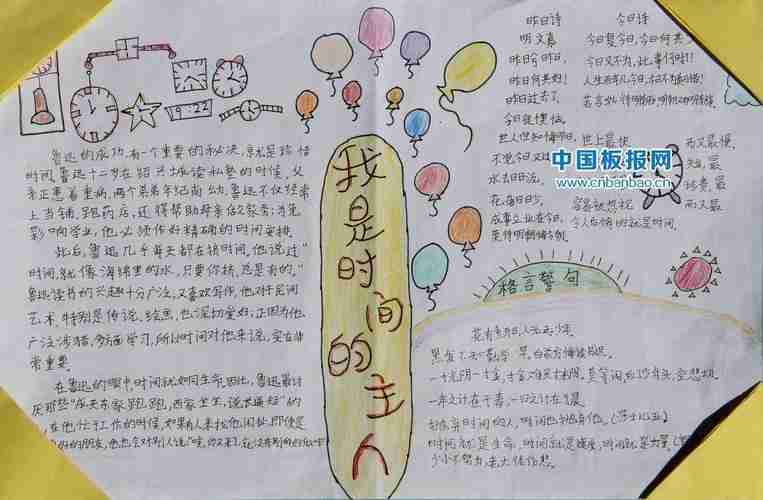 19:22
鲁迅的成功,有一个重要的秘决,就是珍惜
时间。鲁迅十二岁在绍兴城读私塾的时候,父
亲正患着重病,两个弟弟年纪尚幼,鲁迅不仅经常
上当铺,跑药店,还得帮助母亲做家务;为免
影响学业,他必须作好精确的时间安排。
此后,鲁迅几乎每天都在挤时间。他说过"
时间,就像海绵里的水,只要你挤,总是有的。"
鲁迅读书的兴趣十分广泛,又喜欢写作,他对于民间
艺术,特别是传说、绘画,也深切爱好;正因为他
广泛涉猎,多方面学习,所以时间对他来说,实在非
常重要。
在鲁迅的眼中,时间就如同生命。因此,鲁迅最讨
厌那些"成天东家跑跑,西家坐坐,说长道短"的
,在他忙于工作的时候,如果有人来找他闲聊,即使是
好的朋友,他也会对别人说:"唉,你又来了,
我是时间的主人
昨日诗
明 文嘉
昨日兮昨日,
昨日何其好!
昨日过去了,
今日徒懊恼。
世人但知悔昨日,
不觉今日又过了。
水去日日流,
花落日日少,
成事立业在今日,
莫待明朝悔今朝。
今日诗
今日复今日,今日何其少!
今日又不为,此事何时了!
人生百年几今日,今日不为真可惜!
若言姑待明朝至,明朝又有明朝事。
世上最快 而又最慢,
最
珍贵,最
容易被忽视 而又最
令人后悔的就是时间。
中国板报网
www.cnbanbao.cn
格言警句
花有重开日,人无再少年
黑发不知勤学早,白首方悔读书迟。
一寸光阴一寸金,寸金难买寸光阴。莫等闲,白了少年头,空悲切。
一年之计在于春,一日之计在于晨
抛弃时间的人,时间也抛弃他。(莎士比亚)
时间就是生命,时间就是速度,时间就是力量。
少小不努力,老大徒伤悲。